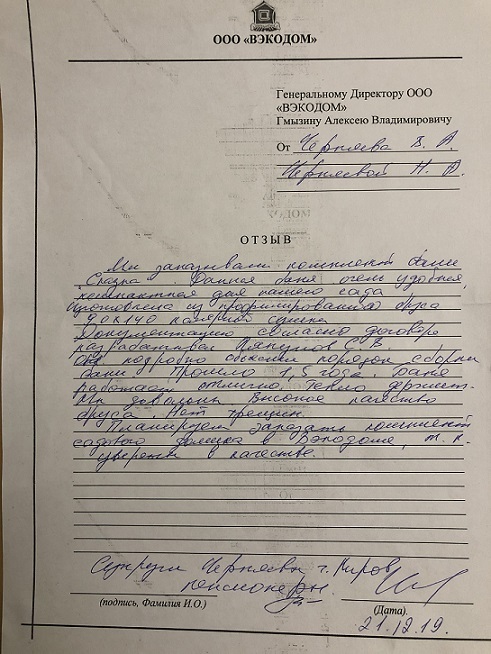 ООО «ВЭКОДОМ»
Генеральному Директору ООО
«ВЭКОДОМ»
Гмызину Алексею Владимировичу
От Черняева В. А.
Черняевой Н. А.
ОТЗЫВ
Мы заказывали комплект бани
Сказка. Данная баня очень удобная,
компактная для нашего сада
Изготовлена из профилированного бруса
90х140 камерной сушки
Документацию согласно договора
разрабатывал С. В.
Он подробно объяснил порядок сборки
бани Прошло 1,5 года. Баня
работает отлично, тепло держит.
Мы довольны Высокое качество
бруса. Нет трещин.
Планируем заказать комплект
садового домика в Вэкодоме, т. к.
уверены в качестве.
Супруги Черняевы г. Киров
пенсионеры.
(подпись, Фамилия И.О.)
(Дата).
21.12.19.